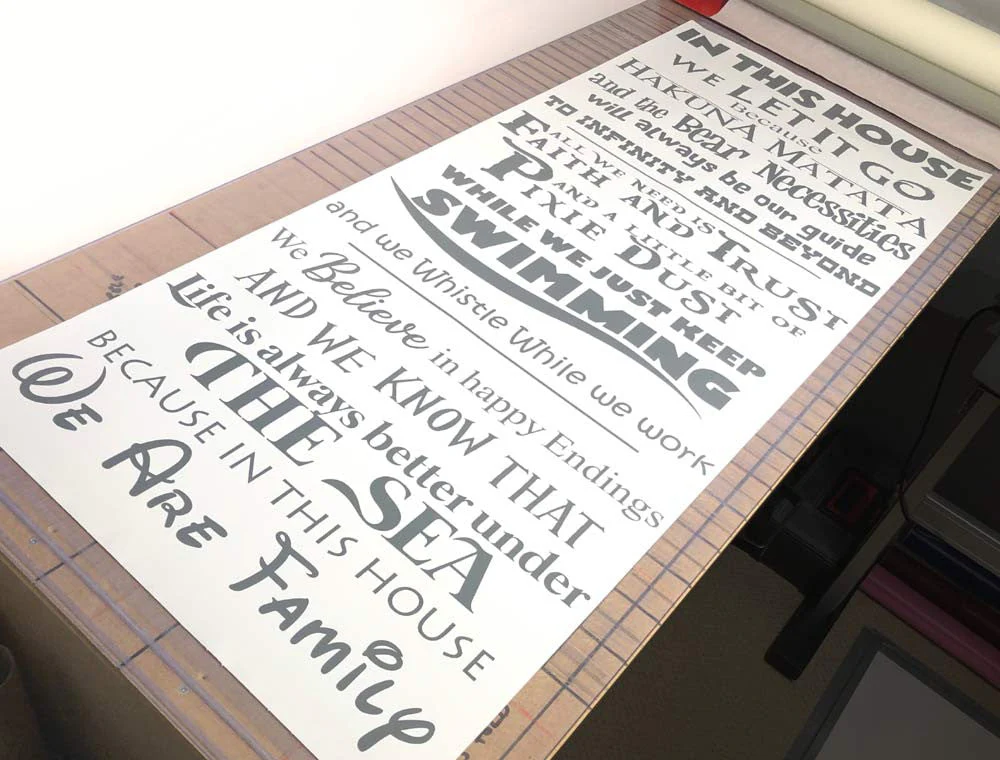 IN THIS HOUSE
WE LET IT GO
Because
HAKUNA MATATA
and the Bear Necessities
will always be our guide
TO INFINITY AND BEYOND
ALL WE NEED IS
FAITH AND TRUST
AND A LITTLE BIT OF
PIXIE DUST
WHILE WE JUST KEEP
SWIMMING
and we Whistle While we work
We Believe in happy Endings
AND WE KNOW THAT
Life is always better under
THE SEA
BECAUSE IN THIS HOUSE
We Are Family